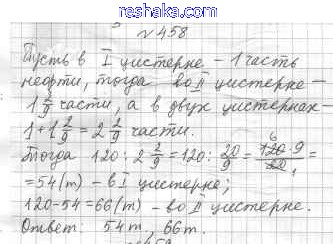 reshaka.com
№458
Пусть в I цистерне – 1 часть
нефти, тогда во II цистерне –
1 2/9 части, а в двух цистернах –
1 + 1 2/9 = 2 2/9 части.
Тогда 120 : 2 2/9 = 120 : 20/9 = 120 · 9 / 20 =
6
1
= 54 (т) – в I цистерне;
120 – 54 = 66 (т) – во II цистерне.
Ответ: 54 т, 66 т.